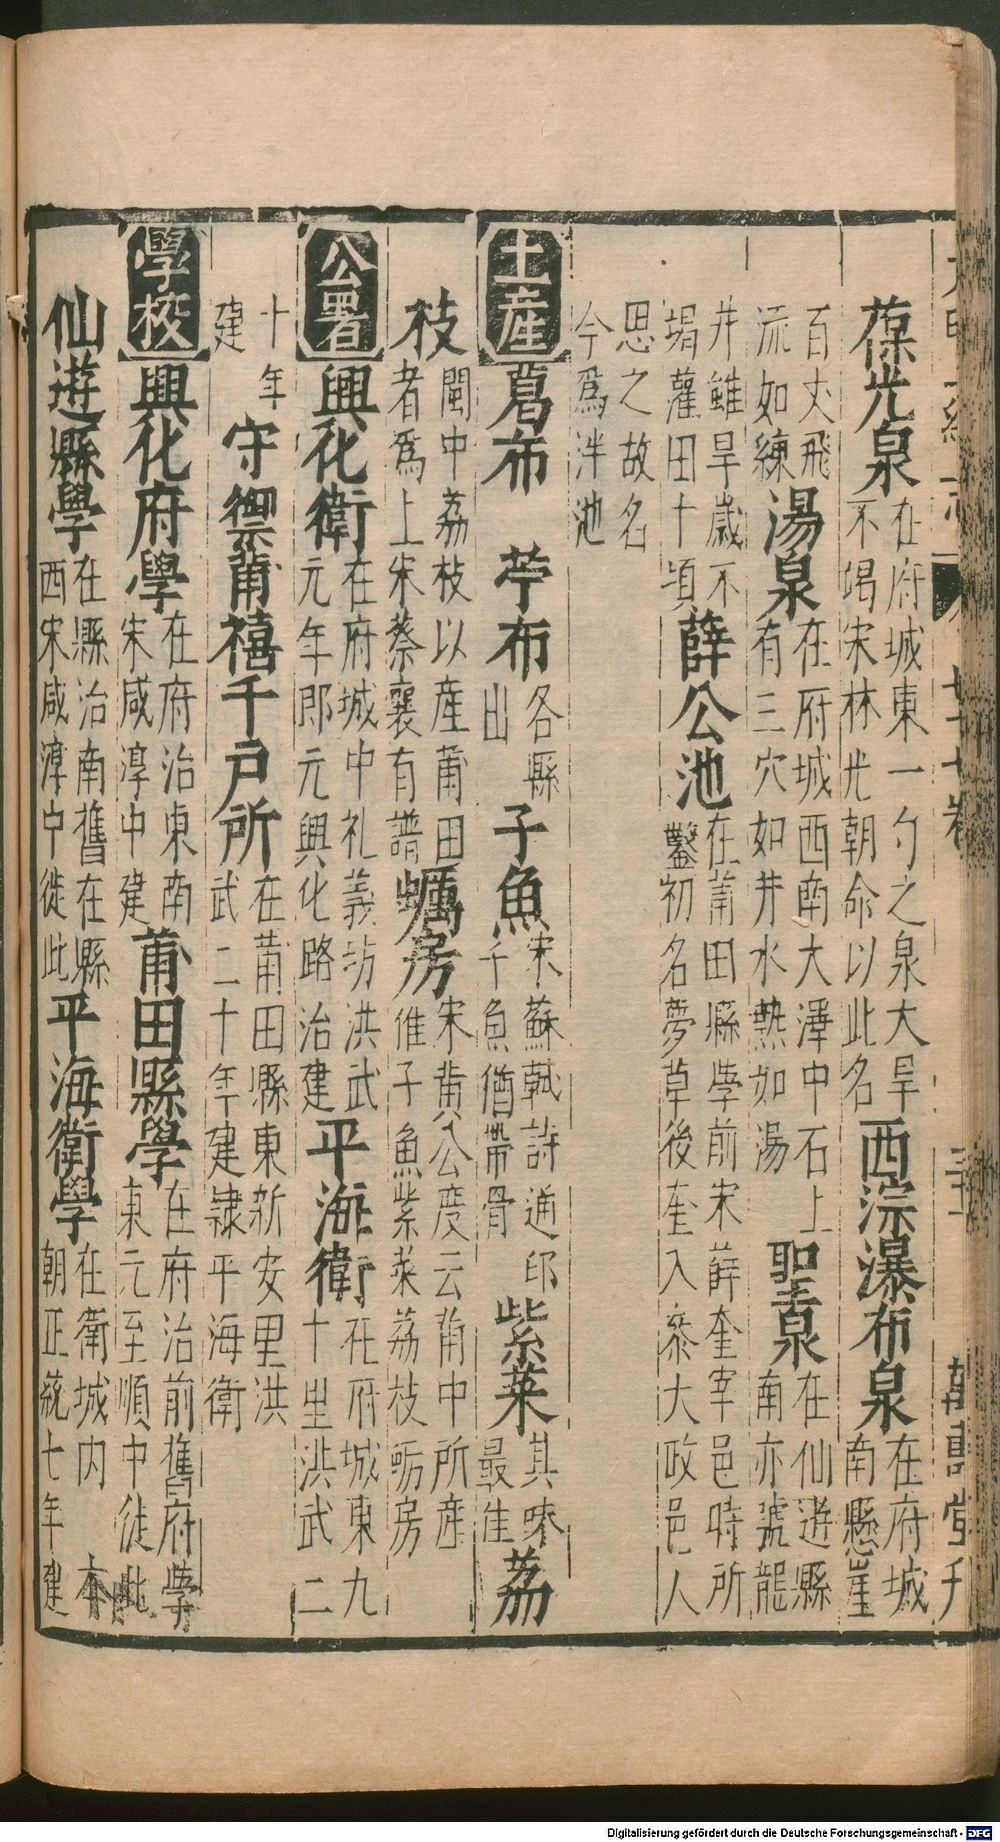 葆光泉在府城東一勺之泉大旱不竭宋林光朝命以此名西淙瀑布泉在府城南懸崖
百丈飛流如練湯泉在府城西南大澤中石上有三穴如井水熱如湯聖泉在仙遊縣南亦號龍
井雖旱歲不竭灌田十頃薛公池在莆田縣學前宋薛奎宰邑時所鑿初名夢草後奎入叅大政邑人
思之故名今爲泮池
土産葛布 苧布各縣出子魚宋蘇軾詩通印子魚猶帶骨紫菜其味最佳荔
枝閩中荔枝以産莆田者爲上宋蔡襄有譜蠣房宋黄公度云莆中所産惟子魚紫菜荔枝蠣房
公署興化衛在府城中礼義坊洪武元年郎元興化路治建平海衛在府城東九十里洪武二
十年建守禦莆禧千戶所在莆田縣東新安里洪武二十年建隷平海衛
學校興化府學在府治東南宋咸淳中建莆田縣學在府治前舊府學東元至順中徙此
仙遊縣學在縣治南舊在縣西宋咸淳中徙此平海衛學在衛城内本朝正統七年建
Digitalisierung gefördert durch die Deutsche Forschungsgemeinschaft - DFG